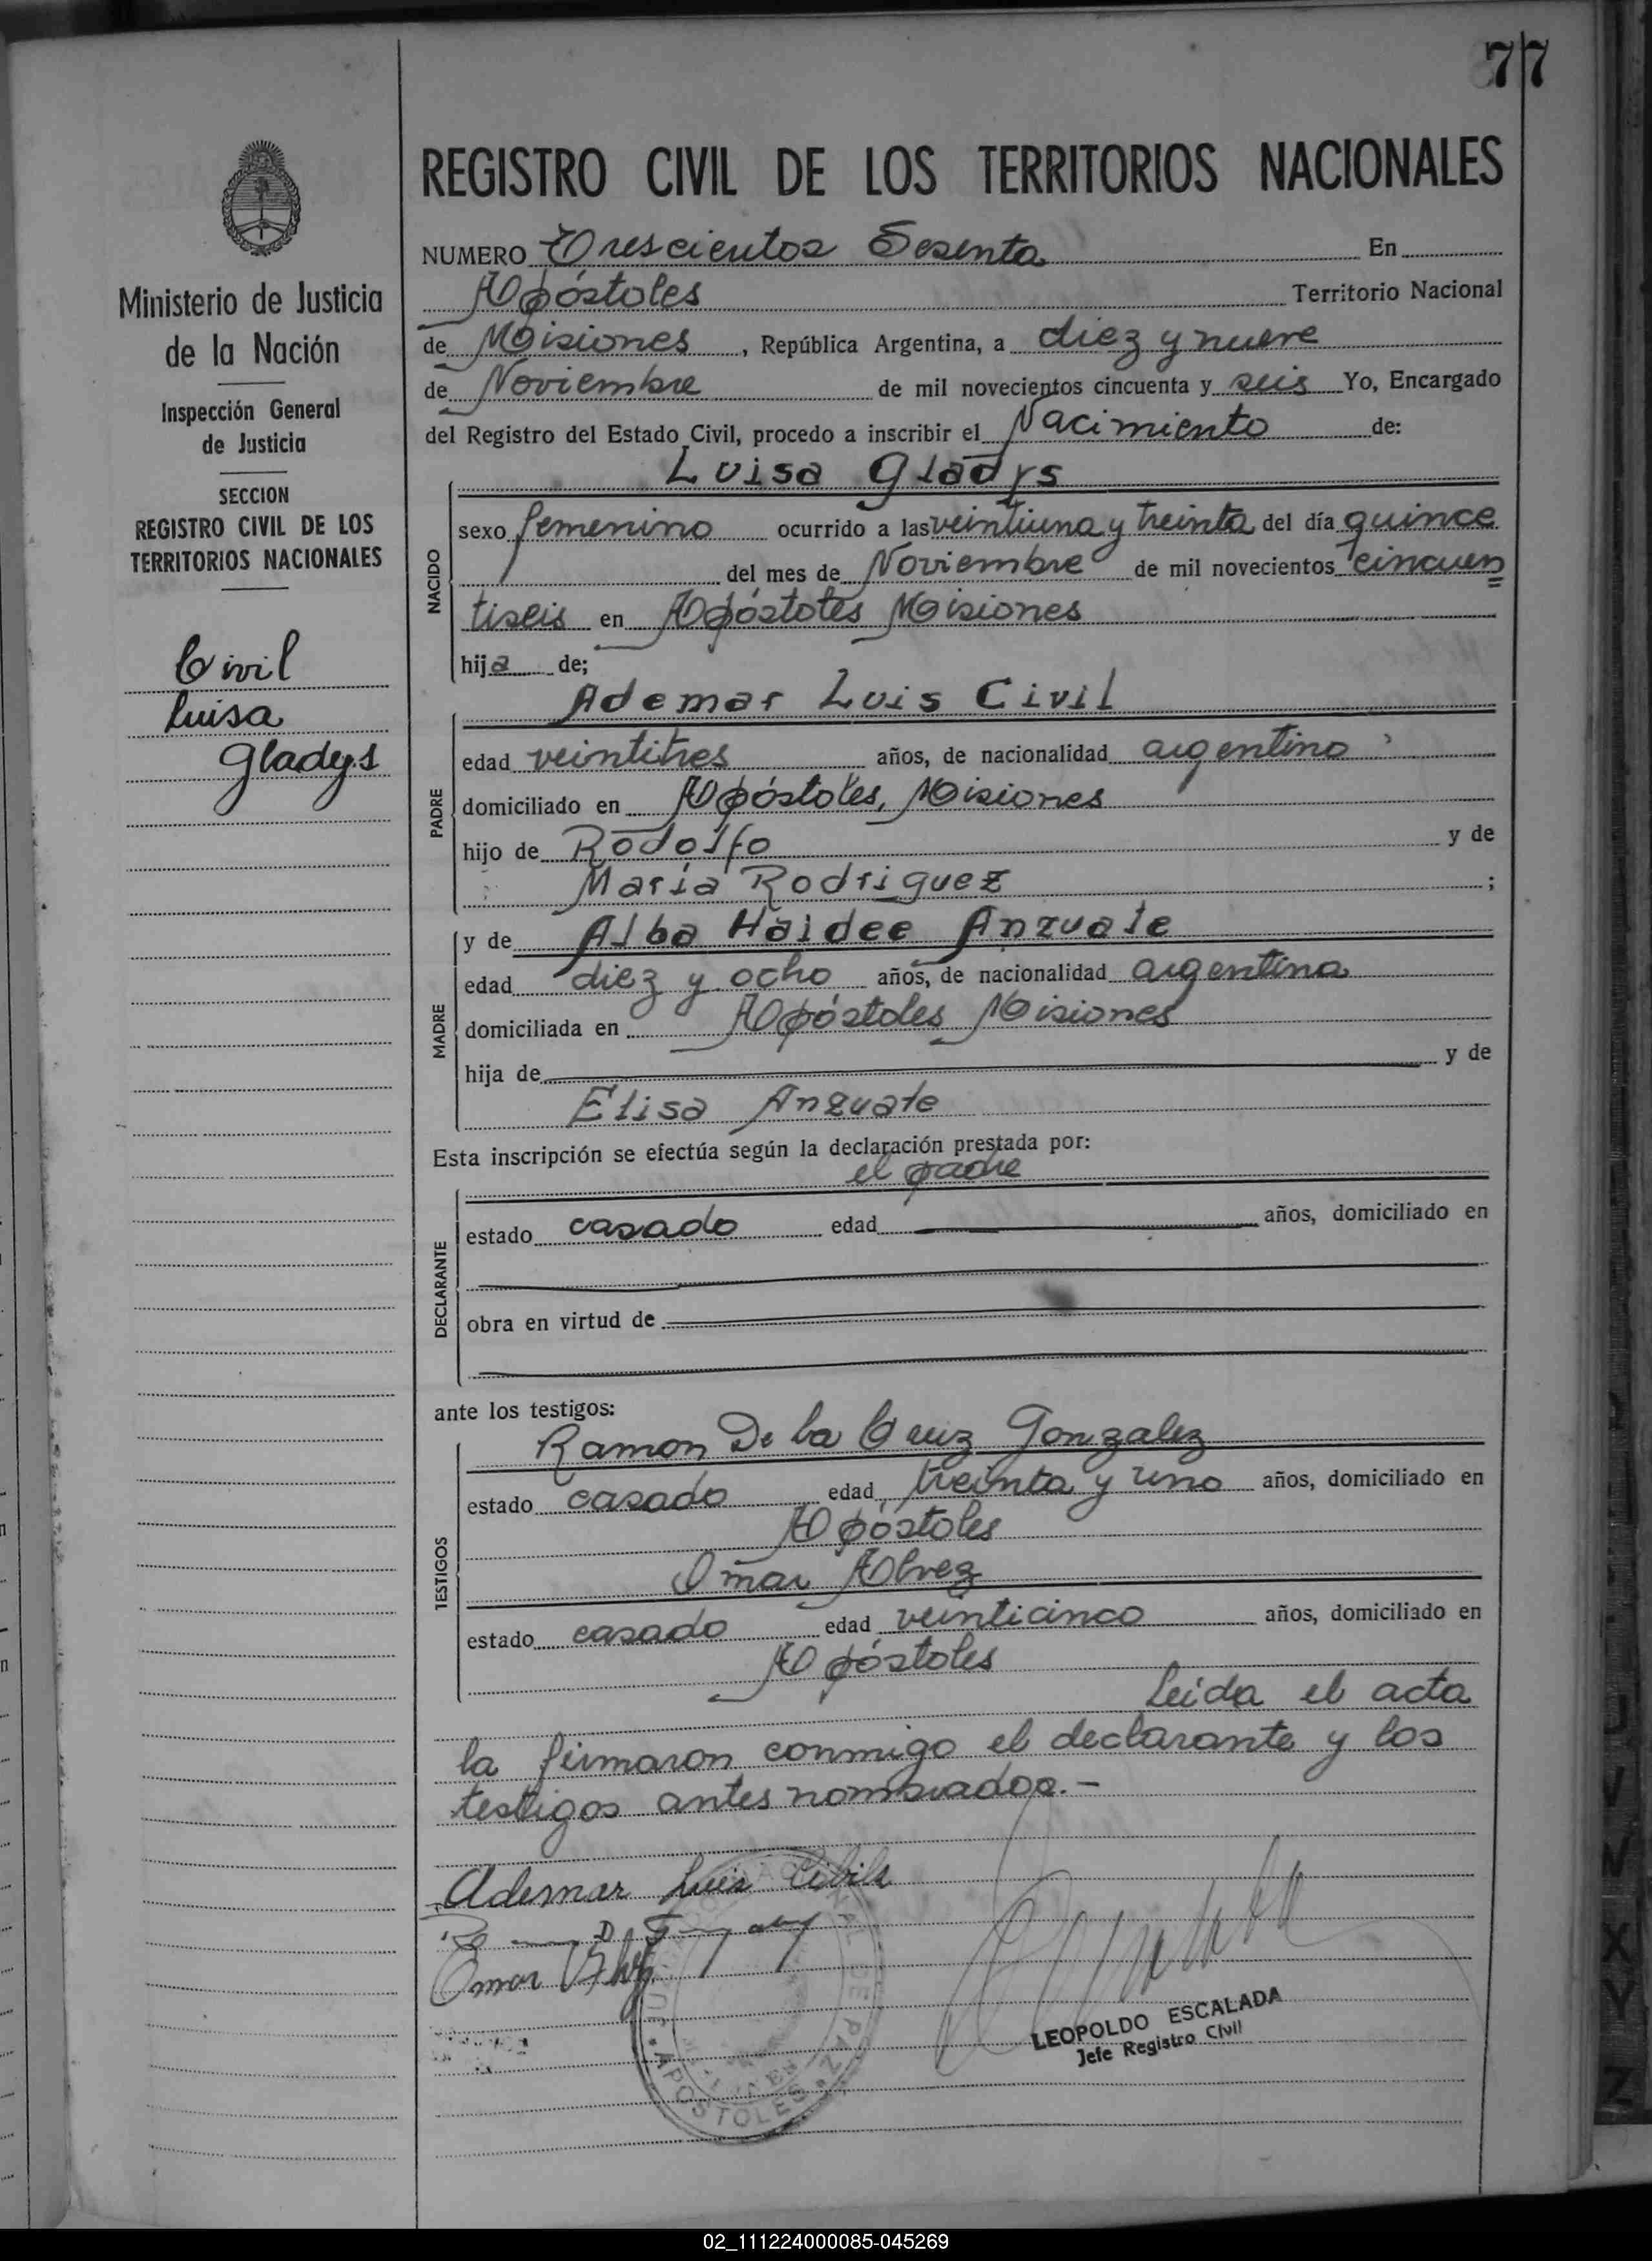 77
REGISTRO CIVIL DE LOS TERRITORIOS NACIONALES
NUMERO Trescientos Sesenta En
Apóstoles Territorio Nacional
de Misiones, República Argentina, a diez y nueve
de Noviembre de mil novecientos cincuenta y seis Yo, Encargado
del Registro del Estado Civil, procedo a inscribir el Nacimiento de:
Luisa Gladys
NACIDO
sexo femenino ocurrido a las veintiuna y treinta del día quince
del mes de Noviembre de mil novecientos cincuen
tiseis en Apóstoles Misiones
hija de;
Ademar Luis Civil
PADRE
edad veintitres años, de nacionalidad argentino
domiciliado en Apóstoles, Misiones
hijo de Rodolfo y de
María Rodriguez ;
MADRE
y de Alba Haidee Anzuate
edad diez y ocho años, de nacionalidad argentina
domiciliada en Apóstoles Misiones
hija de y de
Elisa Anzuate
Esta inscripción se efectúa según la declaración prestada por:
el padre
DECLARANTE
estado casado edad años, domiciliado en
obra en virtud de
ante los testigos:
Ramon De La Cruz Gonzalez
TESTIGOS
estado casado edad treinta y uno años, domiciliado en
Apóstoles
Omar Alvez
estado casado edad veinticinco años, domiciliado en
Apóstoles
Leida el acta
la firmaron conmigo el declarante y los
testigos antes nombrados.-
Ademar Luis Civils
Omar Alvez
APOSTOLES
LEOPOLDO ESCALADA
Jefe Registro Civil
Ministerio de Justicia
de la Nación
Inspección General
de Justicia
SECCION
REGISTRO CIVIL DE LOS
TERRITORIOS NACIONALES
Civil
Luisa
Gladys
02_111224000085-045269